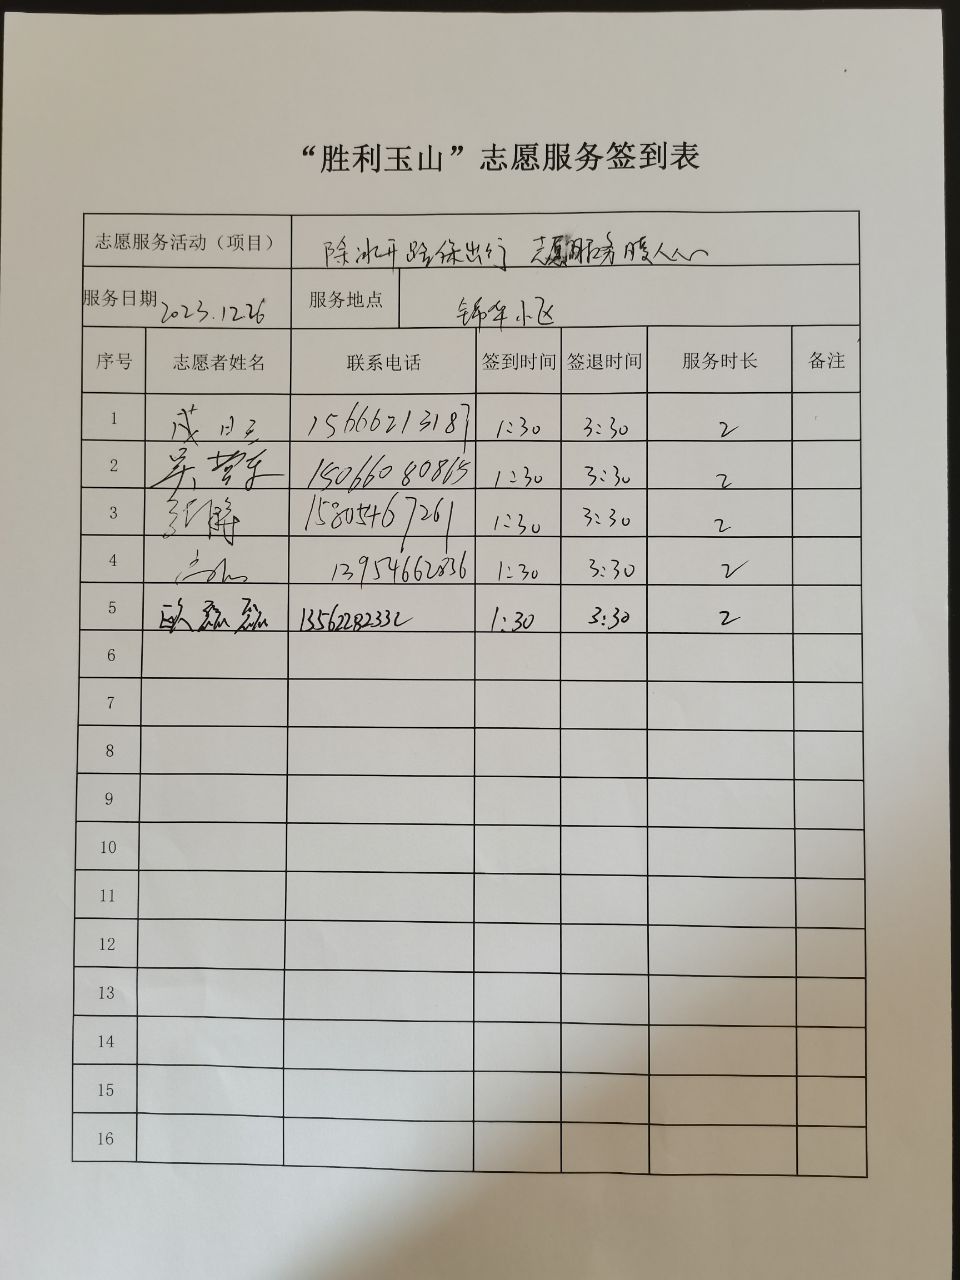 “胜利玉山”志愿服务签到表
志愿服务活动（项目） 除冰开路保出行 志愿服务暖人心
服务日期 2023.12.26 服务地点 锦华小区
序号 志愿者姓名 联系电话 签到时间 签退时间 服务时长 备注
1 15666213187 1:30 3:30 2
2 15066080865 1:30 3:30 2
3 15805467261 1:30 3:30 2
4 13954662836 1:30 3:30 2
5 磊磊 13562282332 1:30 3:30 2
6
7
8
9
10
11
12
13
14
15
16